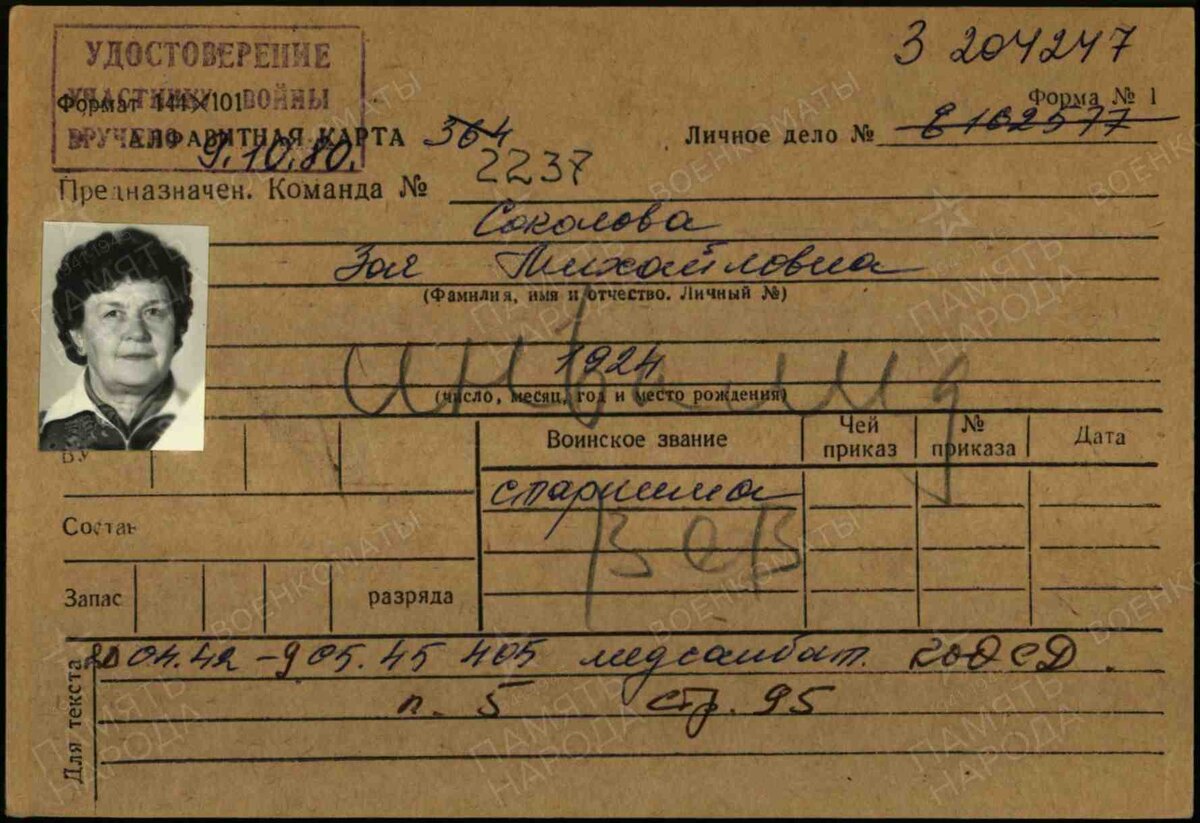 УДОСТОВЕРЕНИЕ
УЧАСТНИКУ ВОЙНЫ
ВРУЧЕНО
9.10.80.
З 204247
Формат 144×101
Форма № 1
АЛФАВИТНАЯ КАРТА 364
Личное дело № Е 162577
Предназначен. Команда № 2237
Соколова
Зоя Михайловна
(Фамилия, имя и отчество. Личный №)
1924
(число, месяц, год и место рождения)
инвалид
ВОВ
ВУ
Воинское звание
Чей приказ
№ приказа
Дата
старшина
Состав
Запас
разряда
Для текста
04.42 - 9 05.45 405 медсанбат. СД.
п. 5 стр. 95
ПАМЯТЬ НАРОДА
ВОЕНКОМАТЫ